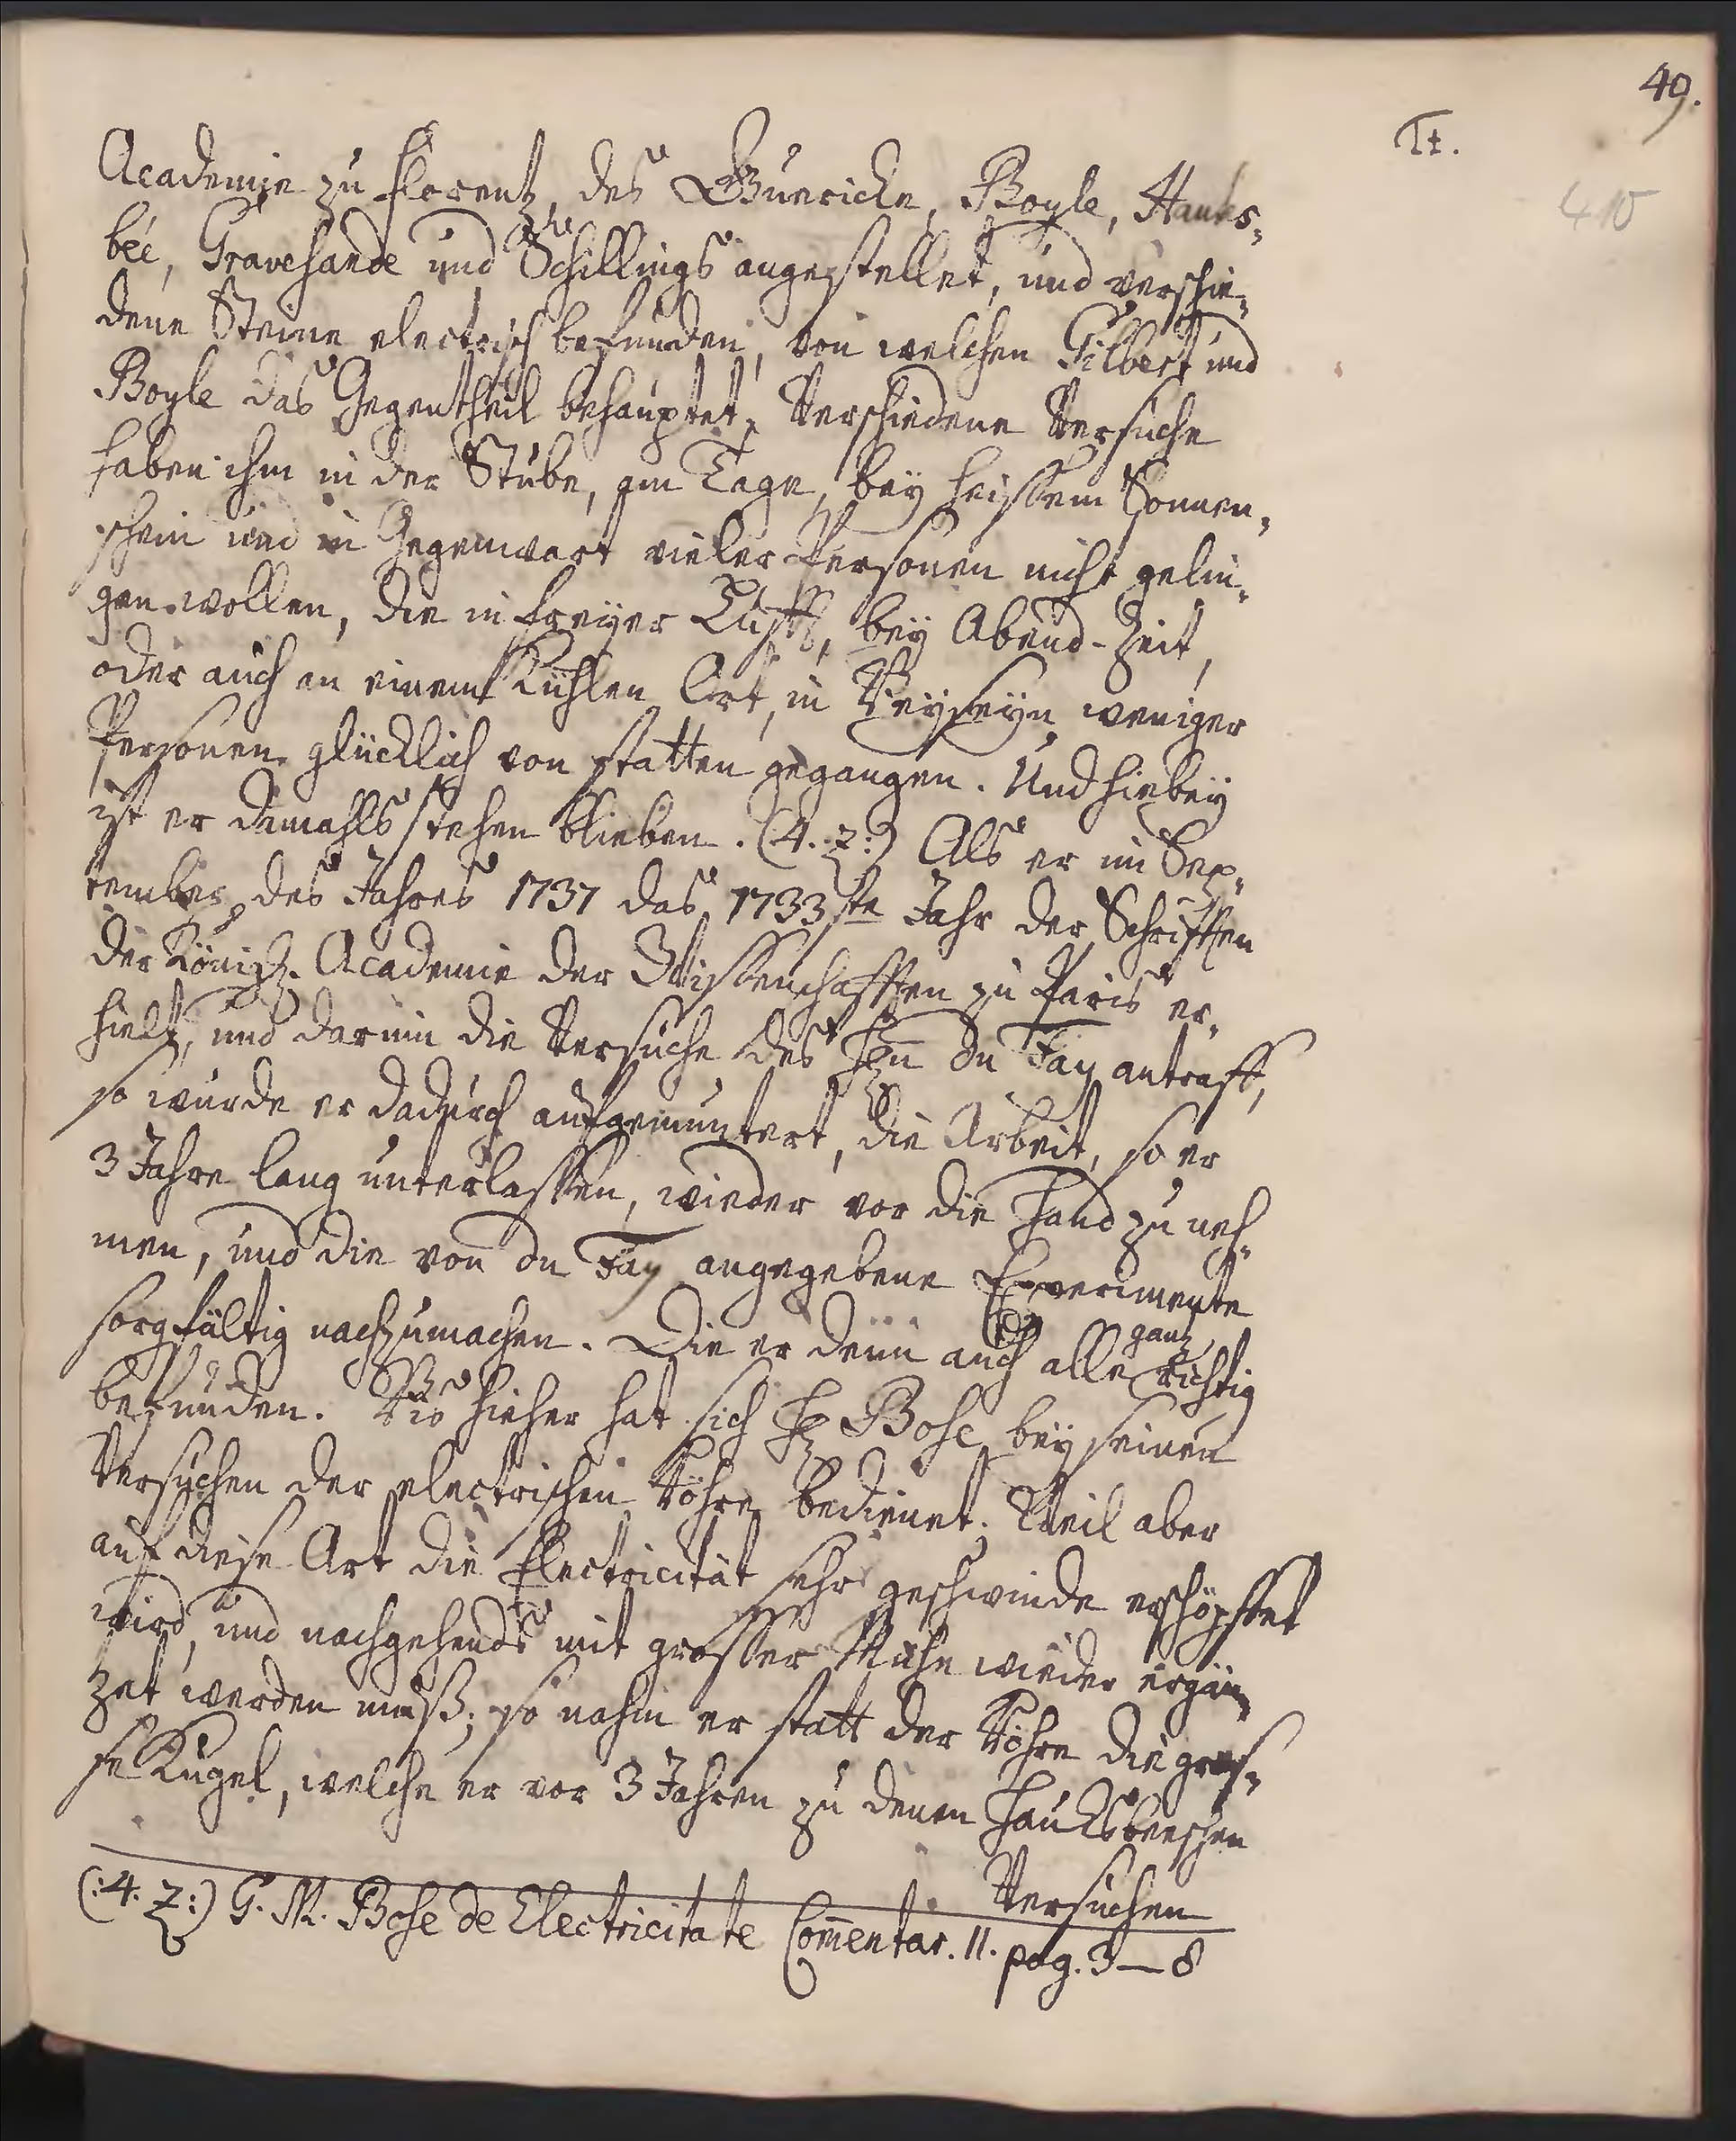 49.
Tt.
410
Academie zu Florentz, des Guericke, Boyle, Hauks-
béé, Gravesande und Schillings angestellet, und verschie-
dene Steine electrisch befunden, von welchen Gilbert und
Boyle das Gegentheil behauptet. Verschiedene Versuche
haben ihm in der Stube, am Tage, bey heissem Sonnen-
schein und in Gegenwart vieler Personen nicht gelin-
gen wollen, die in freyer Lufft, bey Abend-Zeit,
oder auch an einem kühlen Ort, in Beyseyn weniger
Personen glücklich von statten gegangen. Und hiebey
ist er damahls stehen blieben. (4. z:) Als er im Sep-
tember des Jahres 1737 das 1733ste Jahr der Schrifften
der Königl. Academie der Wissenschafften zu Paris er-
hielt, und darinn die Versuche des Hℓn du Fay antraff,
so wurde er dadurch aufgemuntert, die Arbeit, so er
3 Jahre lang unterlassen, wieder vor die Hand zu neh-
men, und die von du Fay angegebene Experimente
sorgfältig nachzumachen. Die er denn auch alle ganz richtig
befunden. Bis hieher hat sich H. Bose bey seinen
Versuchen der electrischen Röhre bedienet. Weil aber
auf diese Art die Electricität sehr geschwinde erschöpffet
wird, und nachgehends mit grosser Mühe wieder ergän-
zet werden muß; so nahm er statt der Röhre die gros-
se Kugel, welche er vor 3 Jahren zu denen Hauksbeeschen
Versuchen
(:4. z:) G. M. Bose de Electricitate Com̄entar. II. pag. 3–8